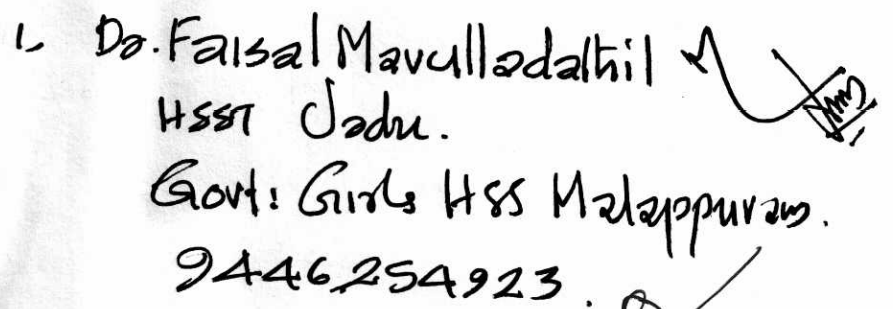 1. Dr. Faisal Mavulladathil
HSST Urdu.
Govt: Girls HSS Malappuram.
9446254923.